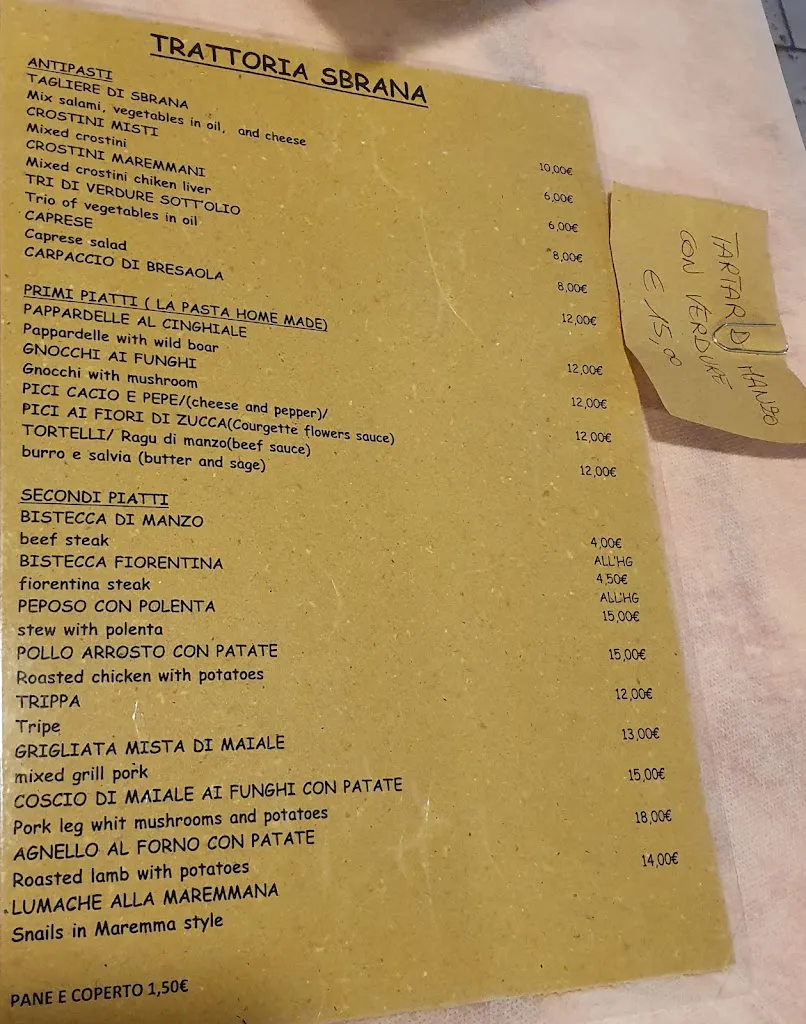 TRATTORIA SBRANA
ANTIPASTI
TAGLIERE DI SBRANA
Mix salami, vegetables in oil, and cheese
10,00€
CROSTINI MISTI
Mixed crostini
6,00€
CROSTINI MAREMMANI
Mixed crostini chiken liver
6,00€
TRI DI VERDURE SOTT'OLIO
Trio of vegetables in oil
8,00€
CAPRESE
Caprese salad
8,00€
CARPACCIO DI BRESAOLA
12,00€
PRIMI PIATTI ( LA PASTA HOME MADE)
PAPPARDELLE AL CINGHIALE
Pappardelle with wild boar
12,00€
GNOCCHI AI FUNGHI
Gnocchi with mushroom
12,00€
PICI CACIO E PEPE/(cheese and pepper)/
PICI AI FIORI DI ZUCCA(Courgette flowers sauce)
12,00€
TORTELLI/ Ragu di manzo(beef sauce)
burro e salvia (butter and sage)
12,00€
SECONDI PIATTI
BISTECCA DI MANZO
beef steak
4,00€
ALL'HG
BISTECCA FIORENTINA
fiorentina steak
4,50€
ALL'HG
PEPOSO CON POLENTA
stew with polenta
15,00€
POLLO ARROSTO CON PATATE
Roasted chicken with potatoes
15,00€
TRIPPA
Tripe
12,00€
GRIGLIATA MISTA DI MAIALE
mixed grill pork
13,00€
COSCIO DI MAIALE AI FUNGHI CON PATATE
Pork leg whit mushrooms and potatoes
15,00€
AGNELLO AL FORNO CON PATATE
Roasted lamb with potatoes
18,00€
LUMACHE ALLA MAREMMANA
Snails in Maremma style
14,00€
PANE E COPERTO 1,50€
TARTAR DI MANZO
CON VERDURE
€ 15,00